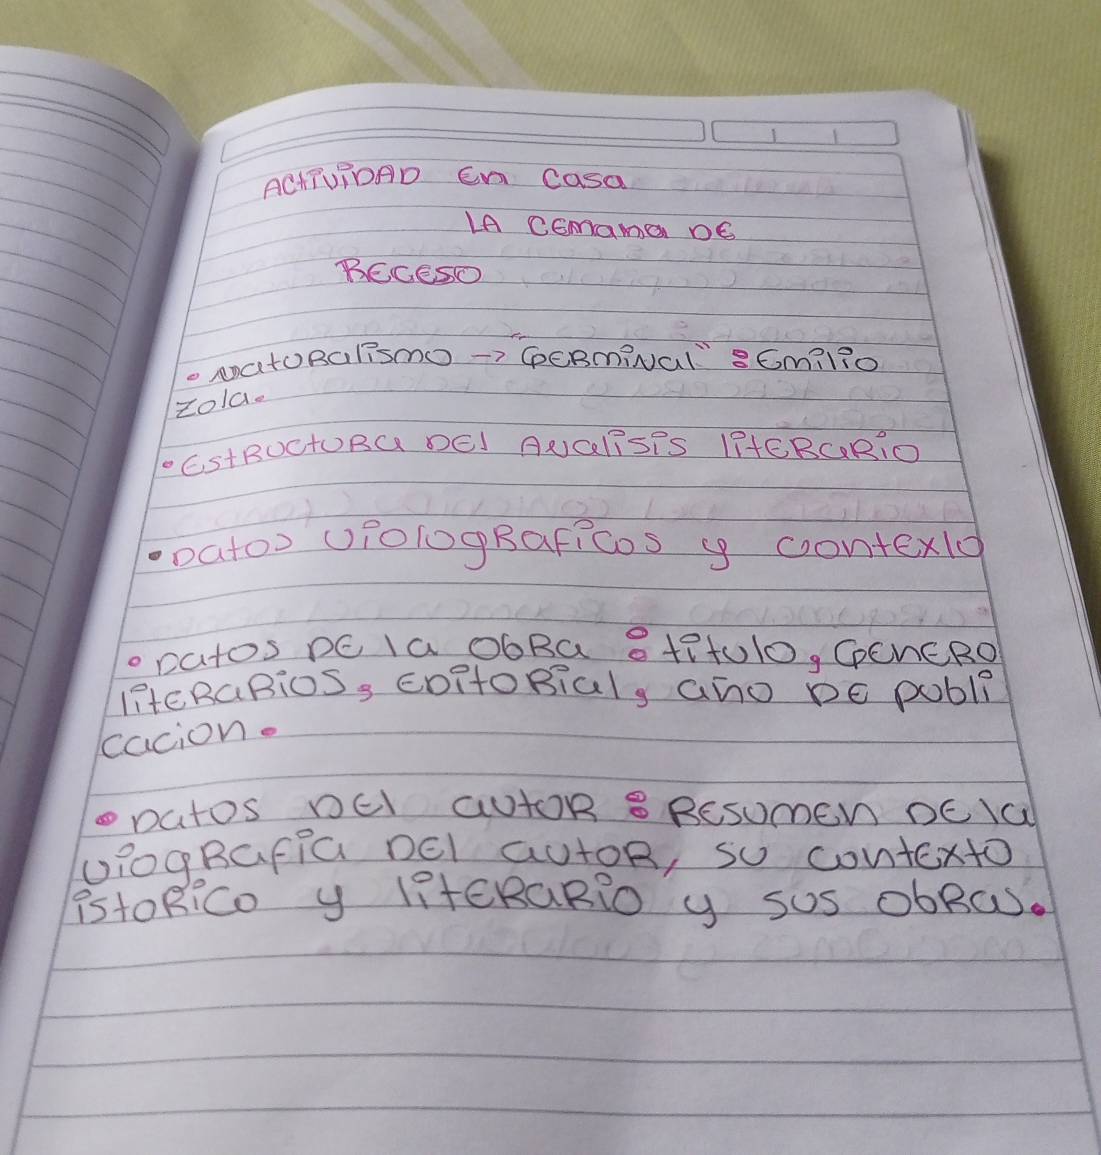 ACtiViDAD En Casa
LA CEmana DE
RECESO
• NatuRalismo → "GERmiNal" : Emilio
zola.
• EstRUctuRa DEl ANalisis litERaRio
• Datos viologRaficos y contexto
• Datos DE la obRa : titulo, GEnERO
litERaRios, EDitoRial, año DE publi
cacion.
• Datos DEl autoR : REsumEn DE la
viogRafia DEl autoR, su contExto
istoRico y litERaRio y sus obRas.